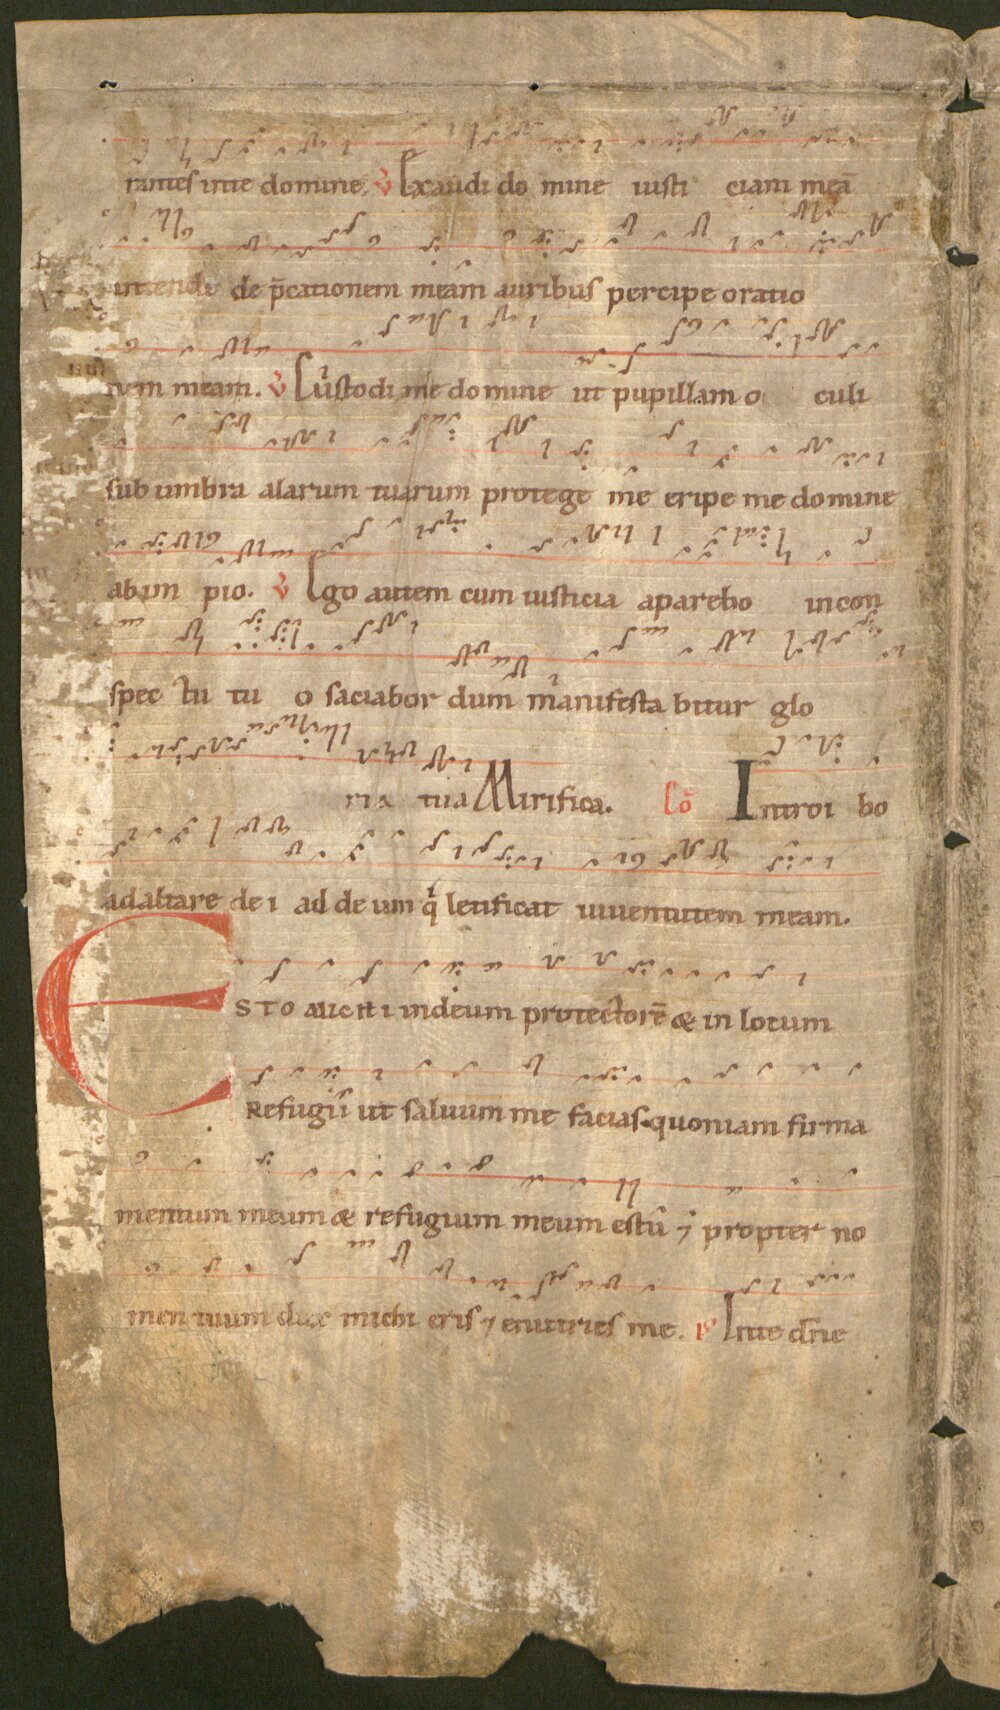 rantes in te domine. V Exaudi do mine iusti ciam meā
intende de p̄cationem meam auribus percipe oratio
nem meam. V Custodi me domine ut pupillam o culi
sub umbra alarum tuarum protege me eripe me domine
ab im pio. V Ego autem cum iusticia aparebo in con
spec tu tu o saciabor dum manifesta bitur glo
ria tua Mirifica. Cō Introi bo
ad altare de i ad de um q letificat iuuentutem meam.
ESTO michi in deum protectorē & in locum
Refugii ut saluum me facias. quoniam firma
mentum meum & refugium meum es tū ⁊ propter no
men tuum dux michi eris ⁊ enutries me. P In te dn̄e